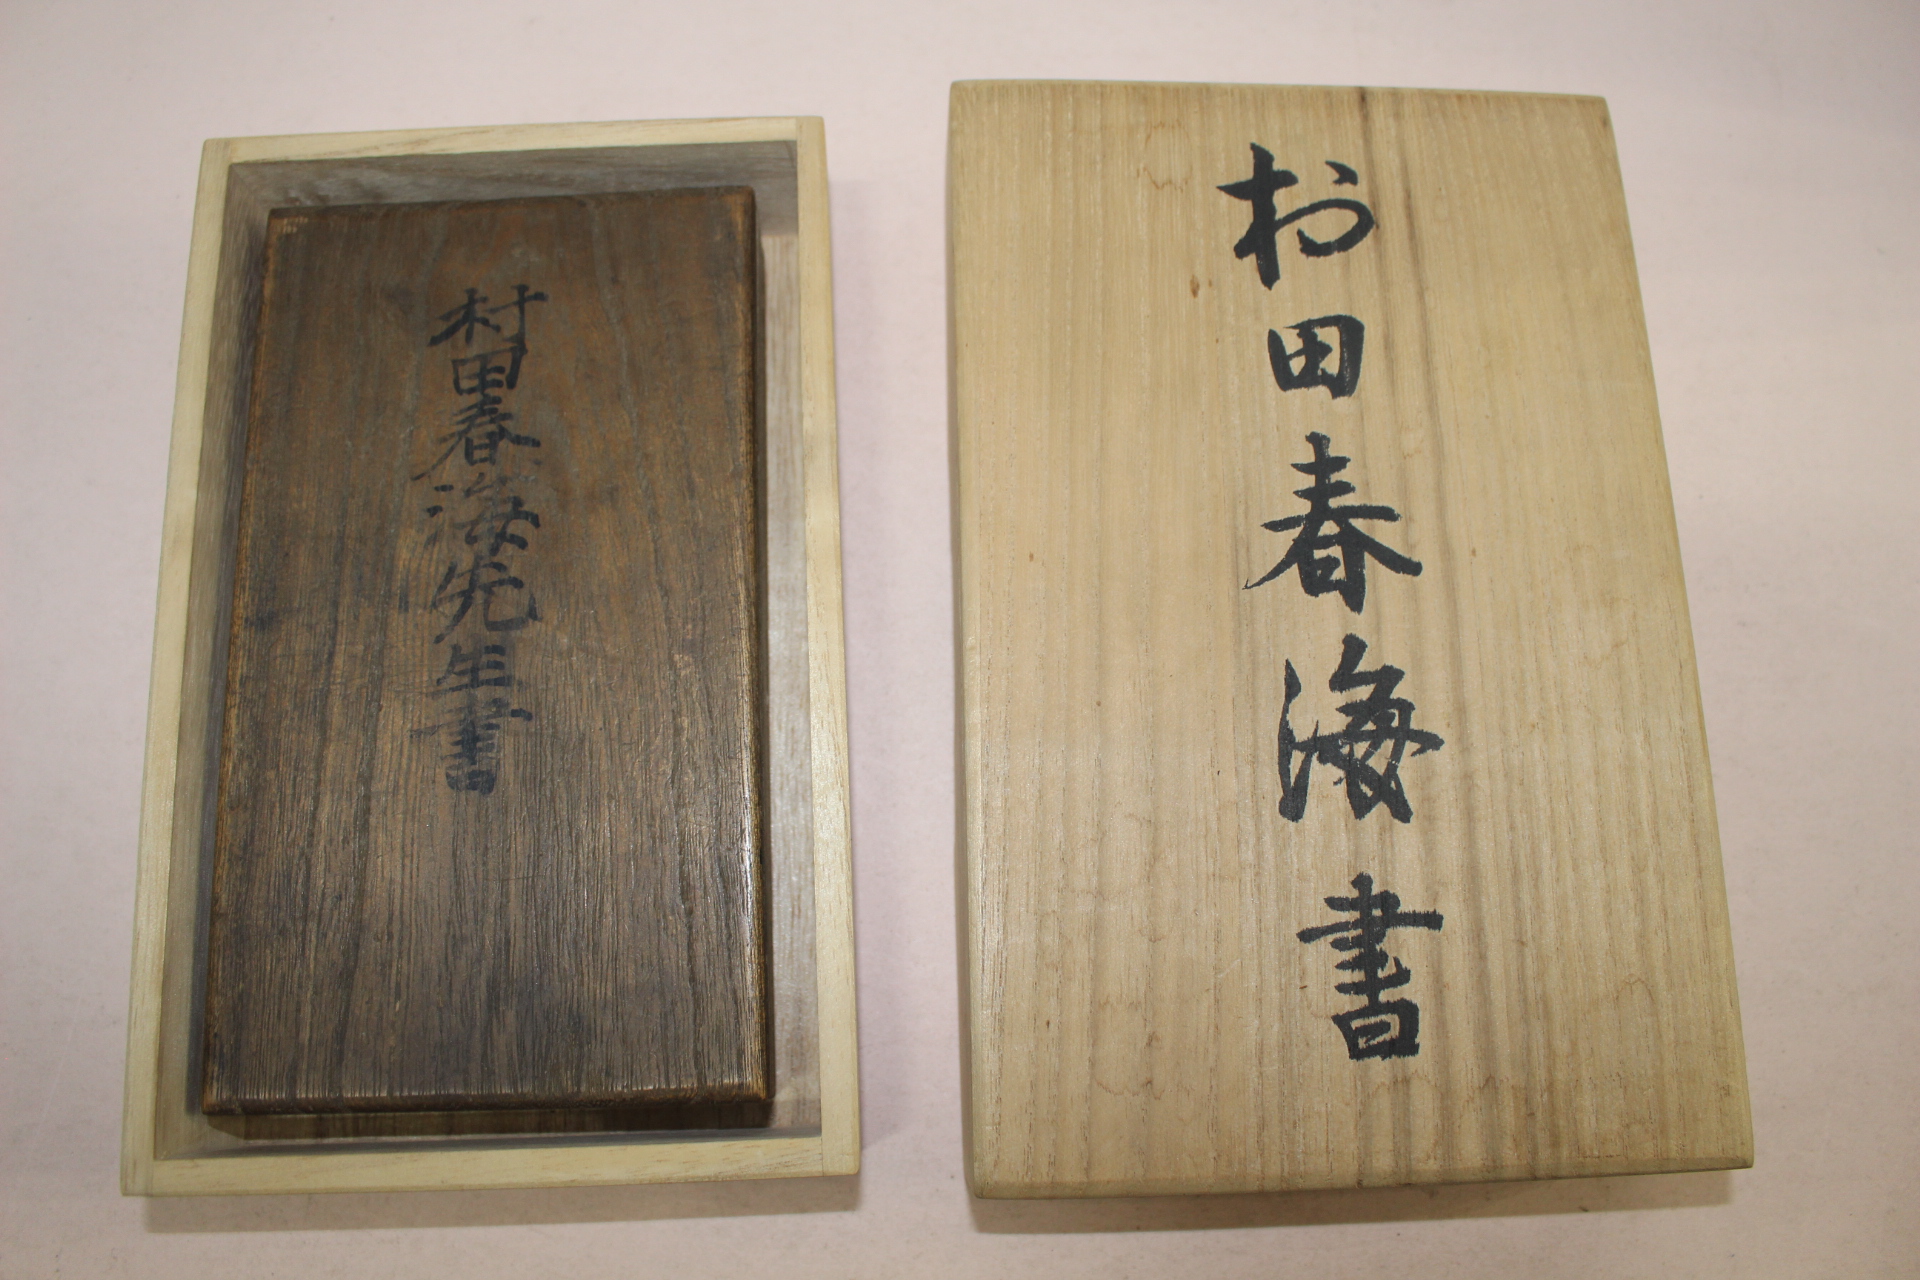 村田春海先生書
村田春海書